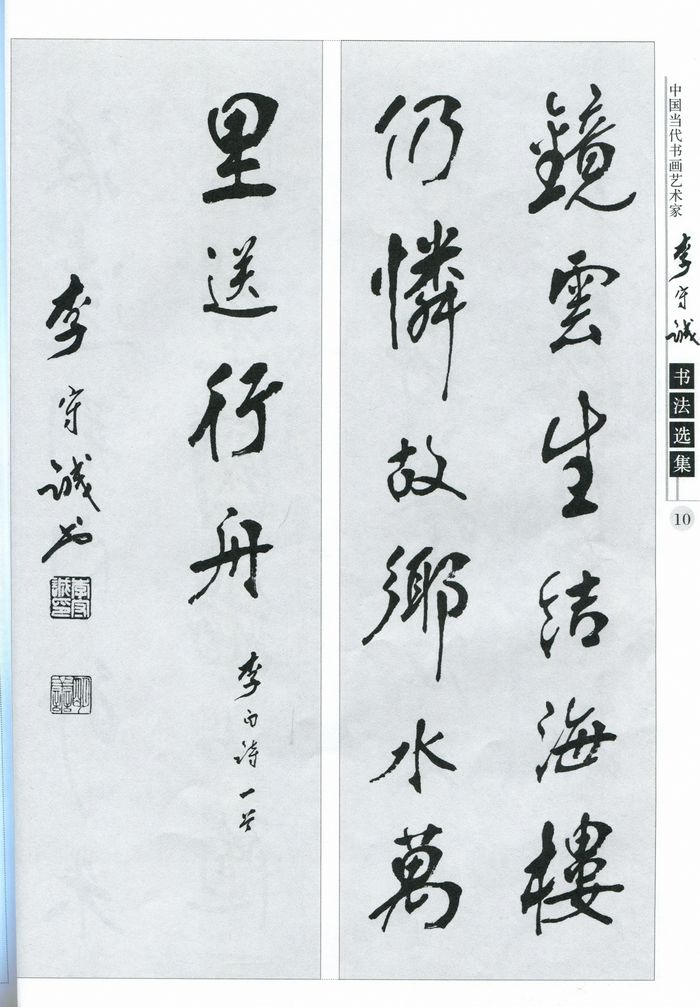 鏡雲生结海樓
仍憐故鄉水萬
里送行舟
李白诗一首
李守诚书
李守
誠印
中国当代书画艺术家
李守诚
书法选集
10